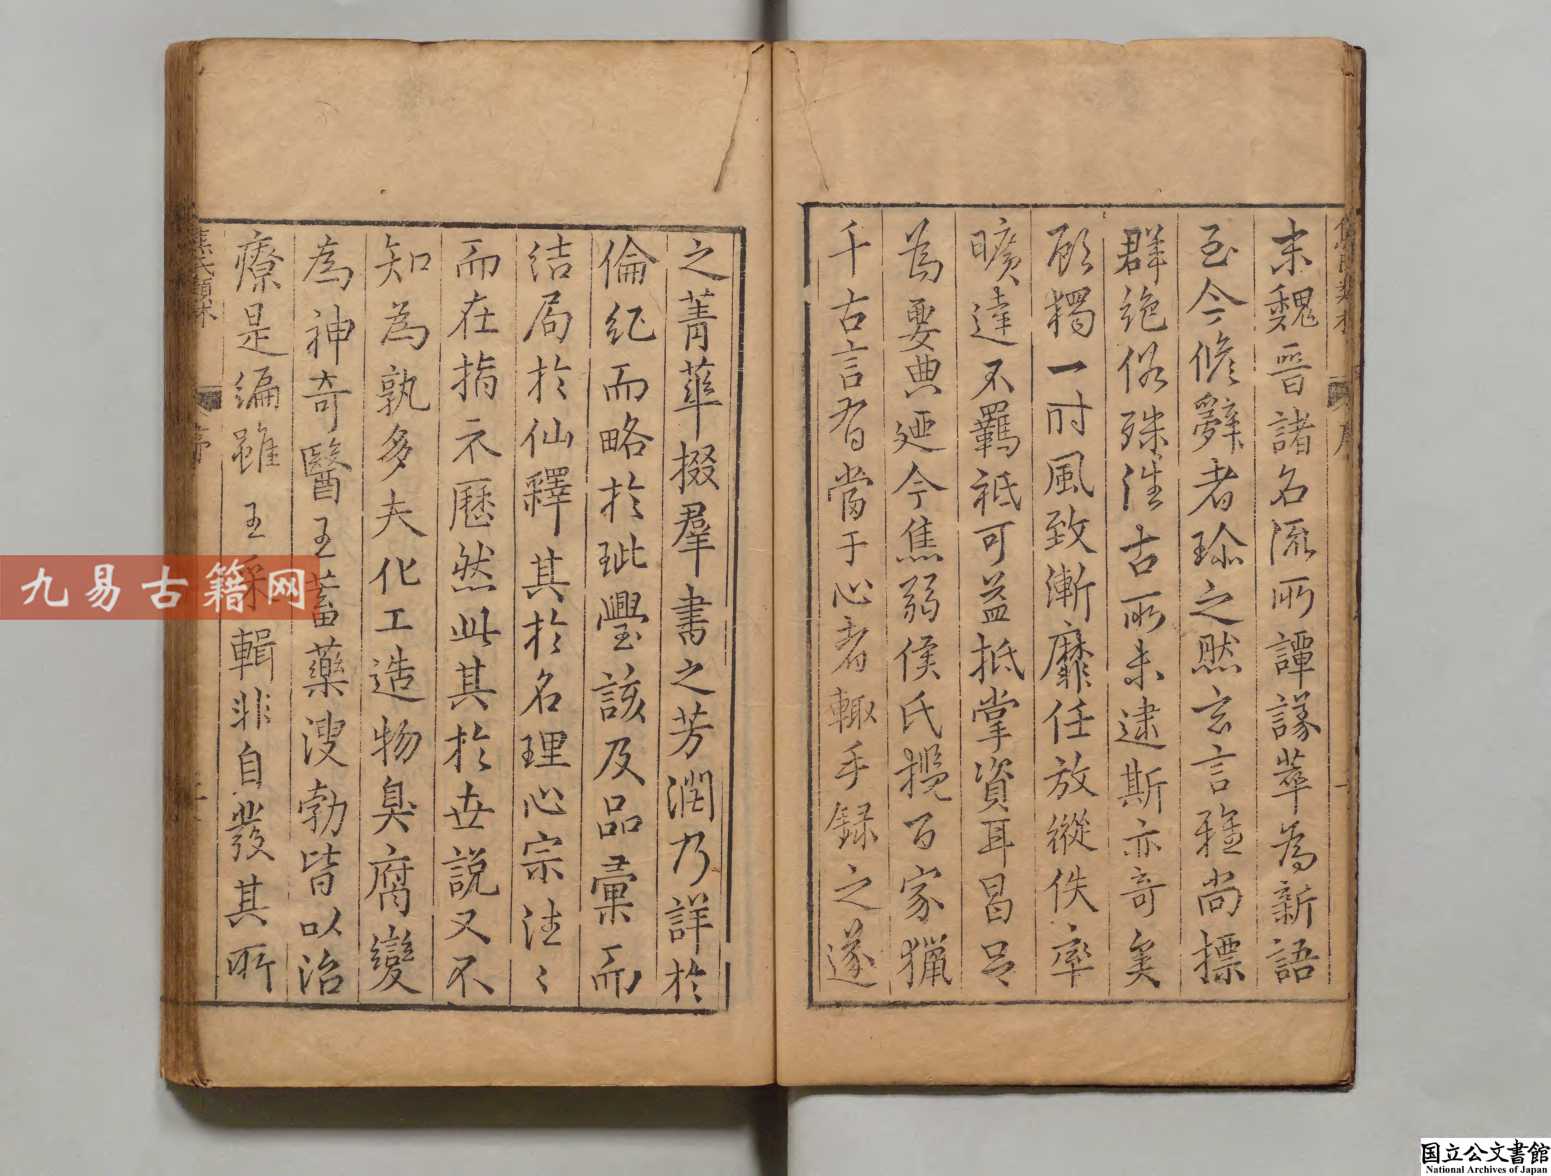 末魏晉諸名流所譚議萃為新語
至今脩辭者珍之然玄言雅尚標
群絶俗殊淮古所未逮斯亦奇矣
顧獨一時風致漸靡任放縱佚率
曠達不羈祗可益抵掌資耳昌呂
為要典廼今焦弱侯氏攬百家獵
千古言有當于心者輙手録之遂
之菁華掇羣書之芳潤乃詳於
倫紀而略於玼舋該及品彙而
結局於仙釋其於名理心宗津〻
而在指示歷然此其於世說又不
知為孰多夫化工造物臭腐變
為神奇醫王蓄藥溲勃皆以治
療是編雖主采輯非自發其所
焦氏類林
序
九易古籍网
国立公文書館
National Archives of Japan